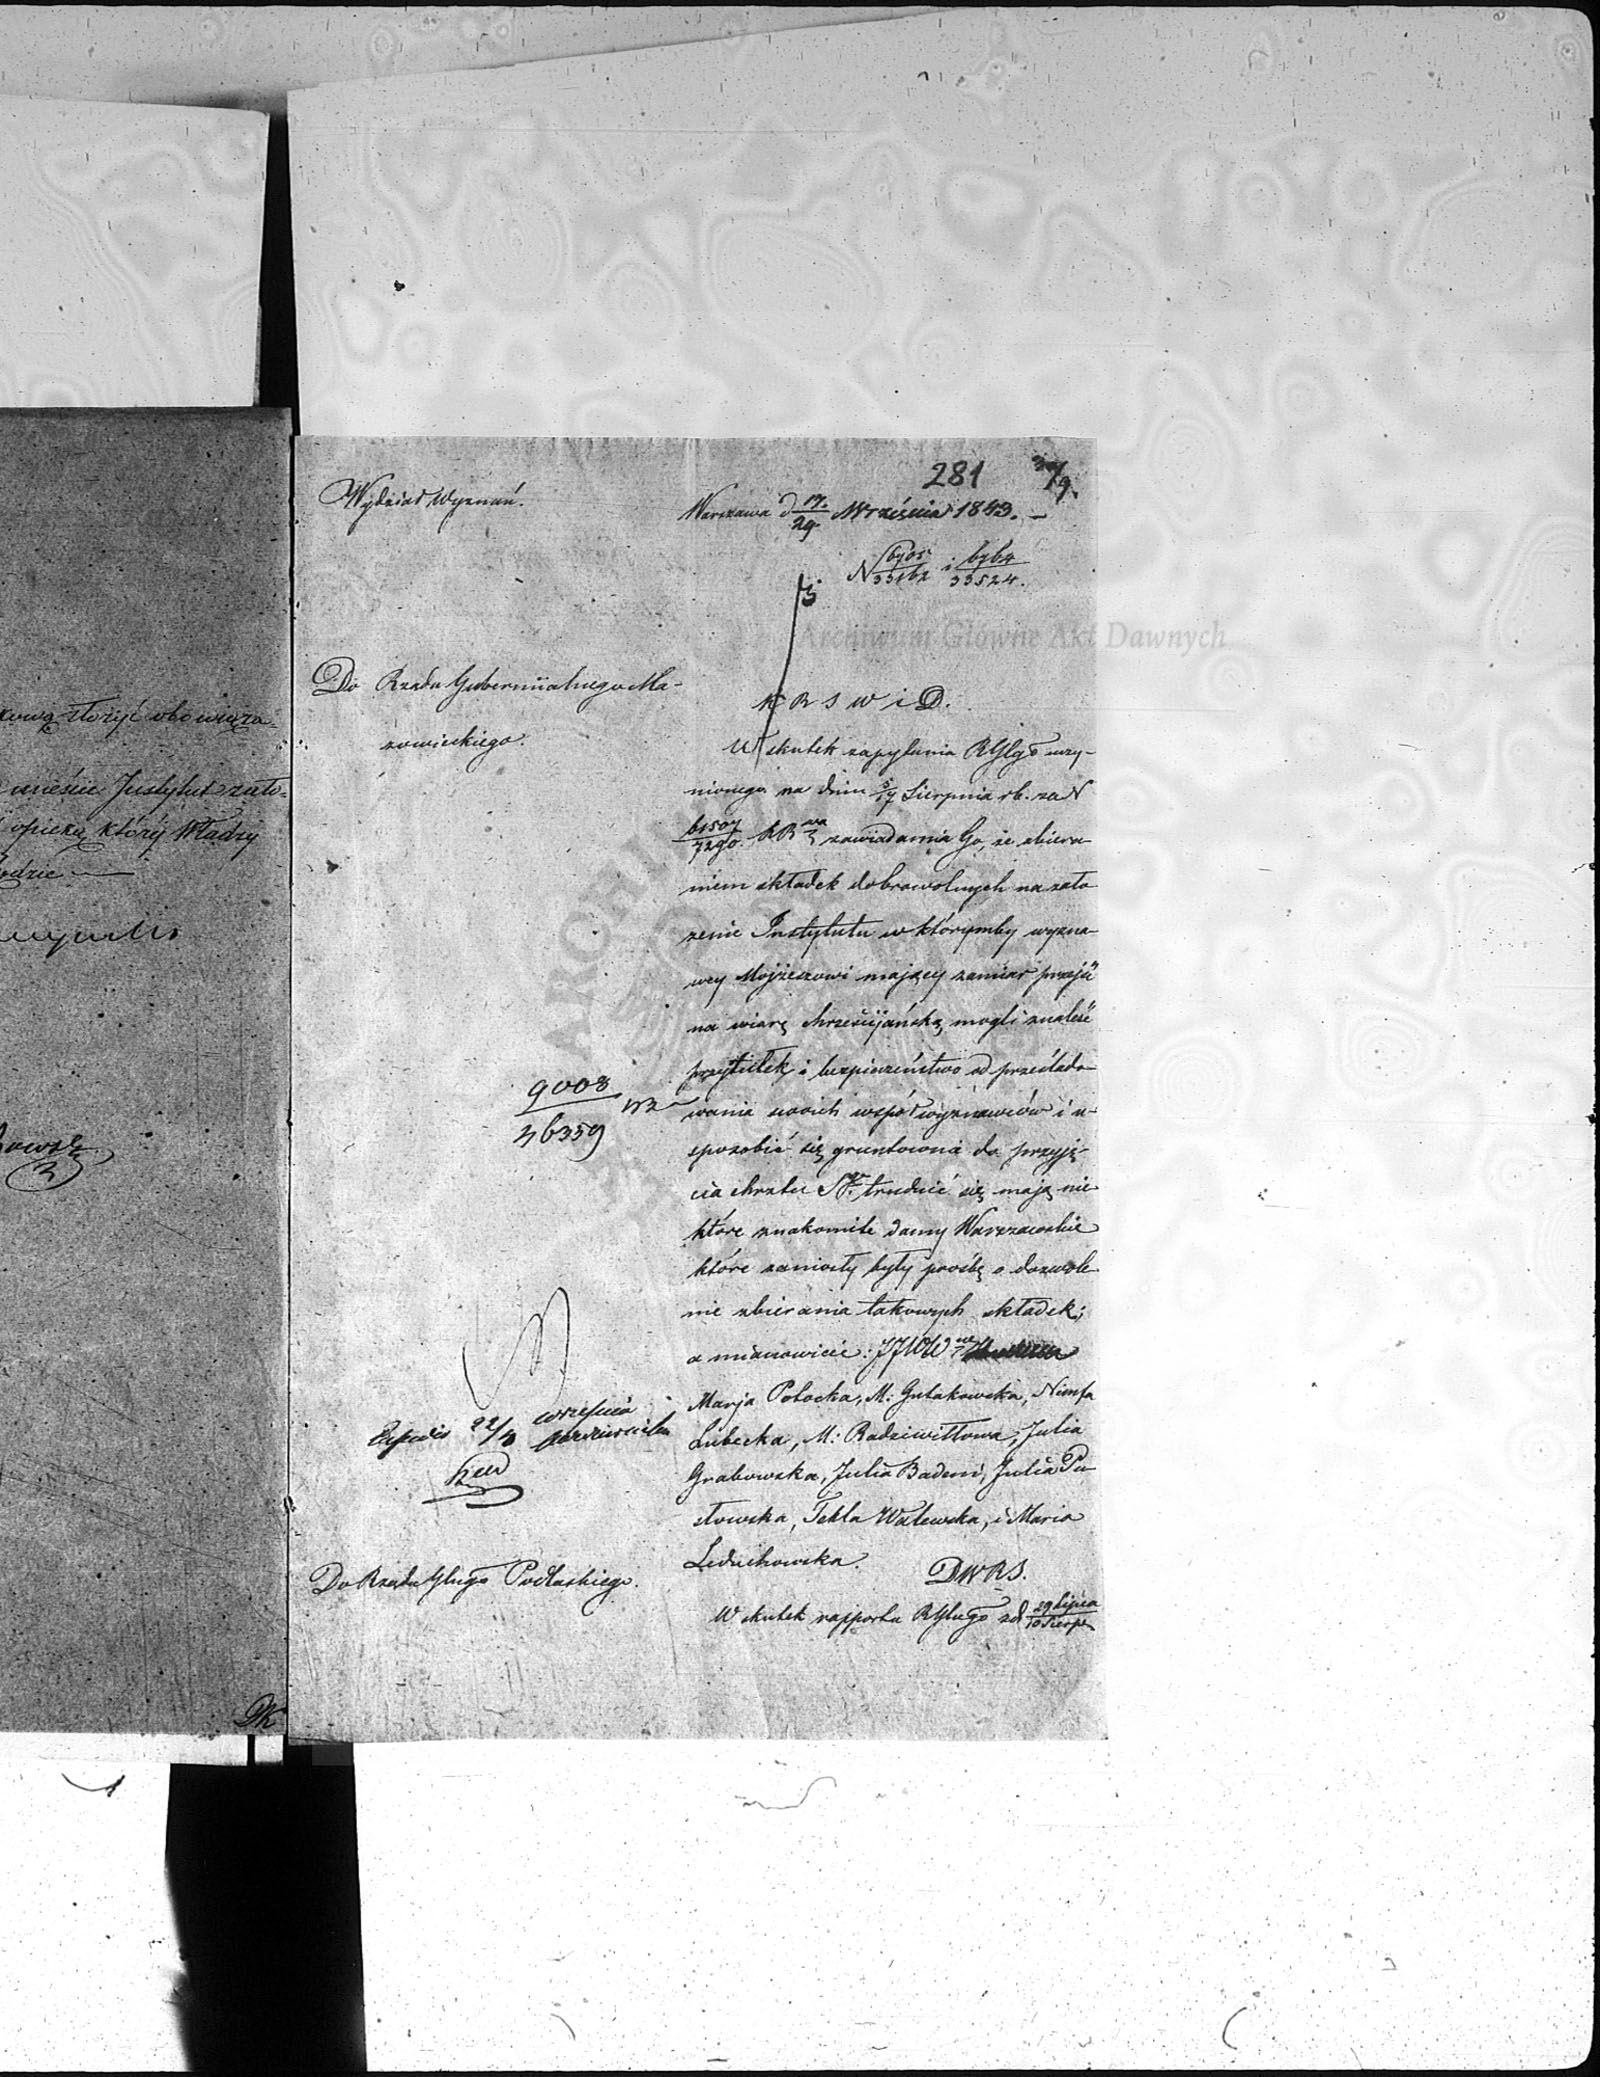 kową złożyć obowiąza-
mieście Instytut zało-
opieką który Władzy
DK
281
Wydział Wyznań.
Warszawa d 17./29. Września 1843. —
N 6705/33162 i 6764/33524.
Archiwum Główne Akt Dawnych
Do Rządu Gubernijalnego Ma-
zowieckiego.
K R S W i D.
W skutek zapytania RGlgo uczy-
nionego na dniu 5/17 Sierpnia rb. za N
61507/7290. KR zawiadamia Go, że zbiera-
niem składek dobrowolnych na zało
żenie Instytutu w którymby wyzna-
wcy Mojżeszowi mający zamiar przejść
na wiarę chrześcijańską, mogli znaleść
przytułek i bezpieczeństwo od prześlado-
wania swoich współwyznawców i u-
sposobić się gruntownie do przyję-
cia chrztu Sgo. trudnić się mają nie
które znakomite damy Warszawskie
które zaniosły były prośbę o dozwole-
nie zbierania takowych składek;
a mianowicie: JJWW
Marja Potocka, M: Gutakowska, Nimfa
Lubecka, M: Radziwiłłowa, Julia
Grabowska, Julia Badeni, Julia Pu-
słowska, Tekla Walewska, i Maria
Leduchowska.
DWRS.
9008/36359
września
Do Rządu Glngo Podlaskiego.
W skutek rapportu RGlngo z d 29 Lipca/10 Sierp